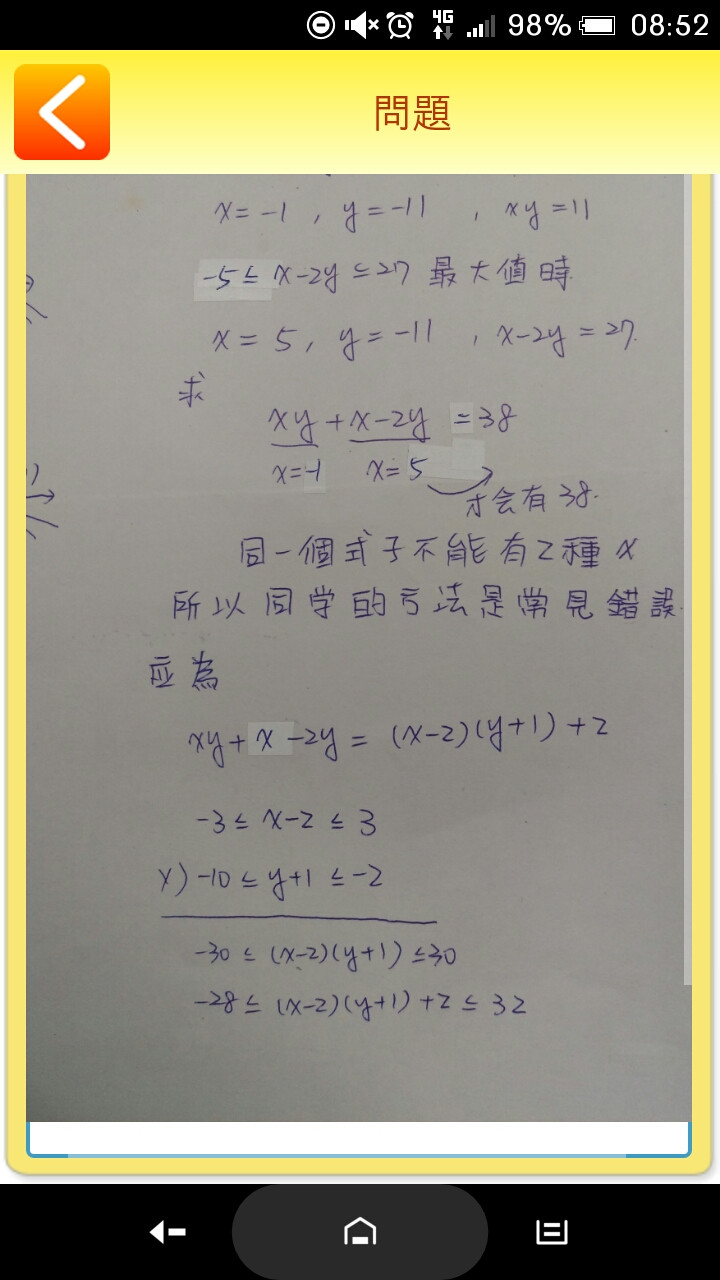 4G 98% 08:52
問題
x=-1 , y=-11 , xy=11
-5≤x-2y≤27 最大值時
x=5, y=-11 , x-2y=27.
求
xy+x-2y=38
x=-1 x=5
才会有38.
同一個式子不能有2種x
所以同学的方法是常見錯誤.
应為
xy+x-2y=(x-2)(y+1)+2
-3≤x-2≤3
x)-10≤y+1≤-2
-30≤(x-2)(y+1)≤30
-28≤(x-2)(y+1)+2≤32